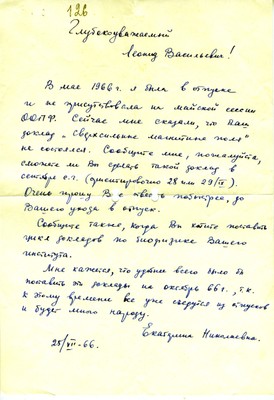 126
Глубокоуважаемый
Леонид Васильевич!
В мае 1966 г. я была в отпуске
и не присутствовала на майской сессии
ООПФ. Сейчас мне сказали, что Ваш
доклад "Сверхсильные магнитные поля"
не состоялся. Сообщите мне, пожалуйста,
сможете ли Вы сделать такой доклад в
сентябре с.г. (ориентировочно 28 или 29/IX).
Очень прошу Вас ответь побыстрее, до
Вашего ухода в отпуск.
Сообщите также, когда Вы хотите поставить
цикл докладов по биофизике Вашего
института.
Мне кажется, что удобнее всего было бы
поставить эти доклады на октябрь 66 г., т.к.
к этому времени все уже съедутся из отпусков
и будет много народу.
Екатерина Николаевна.
25/VII-66.